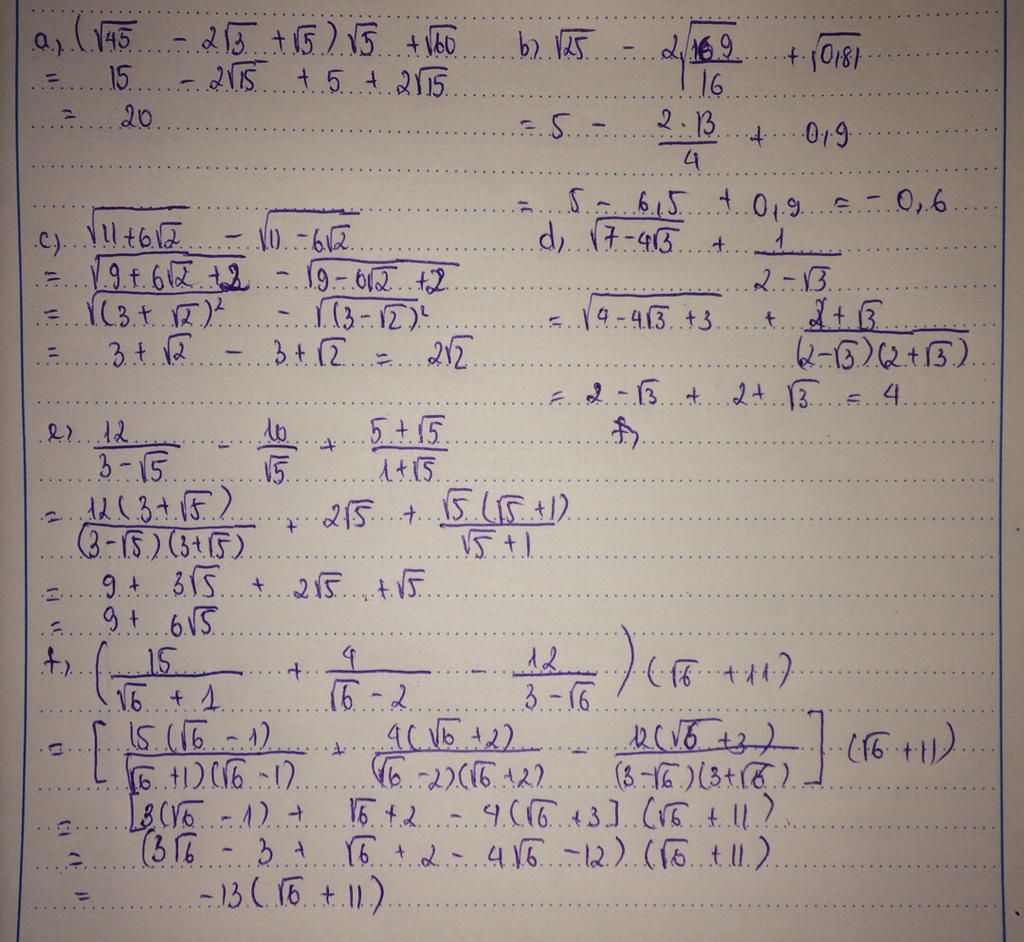 a, (√45 - 2√3 + √5)√5 + √60
= 15 - 2√15 + 5 + 2√15
= 20
b) √25 - 2√(169/16) + √0,81
= 5 - (2·13)/4 + 0,9
= 5 - 6,5 + 0,9 = -0,6
c, √(11+6√2) - √(11-6√2)
= √(9+6√2+2) - √(9-6√2+2)
= √(3+√2)² - √(3-√2)²
= 3+√2 - 3+√2 = 2√2
d, √(7-4√3) + 1/(2-√3)
= √(4-4√3+3) + (2+√3)/((2-√3)(2+√3))
= 2-√3 + 2+√3 = 4
e, 12/(3-√5) - 10/√5 + (5+√5)/(1+√5)
= 12(3+√5)/((3-√5)(3+√5)) + 2√5 + √5(√5+1)/(√5+1)
= 9 + 3√5 + 2√5 + √5
= 9 + 6√5
f, (15/(√6+1) + 4/(√6-2) - 12/(3-√6))(√6+11)
= [15(√6-1)/((√6+1)(√6-1)) + 4(√6+2)/((√6-2)(√6+2)) - 12(√6+3)/((3-√6)(3+√6))](√6+11)
= [3(√6-1) + √6+2 - 4(√6+3](√6+11)
= (3√6 - 3 + √6 + 2 - 4√6 - 12)(√6+11)
= -13(√6+11)